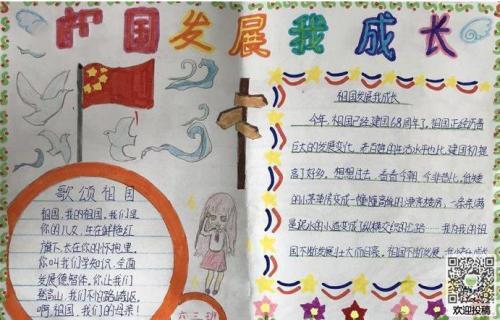 中国发展我成长
歌颂祖国
祖国,我的祖国,我们是
你的儿女,生在鲜艳红
旗下,长在你的怀抱里,
你叫我们学知识,全面
发展德智体,你让我们
啊,祖国,我们的母亲!
六三班
祖国发展我成长
今年,祖国已经建国68周年了,祖国正经历着
巨大的发展变化,老百姓的生活水平也比建国初提
高了好多。想想过去,看看今朝,今非昔比,低矮
的小茅草房变成一幢幢高高的漂亮楼房,一条条
里起水的小道变成了纵横交织的公路……我为我的祖
国不断发展壮大而自豪。祖国不断发展,我
欢迎投稿